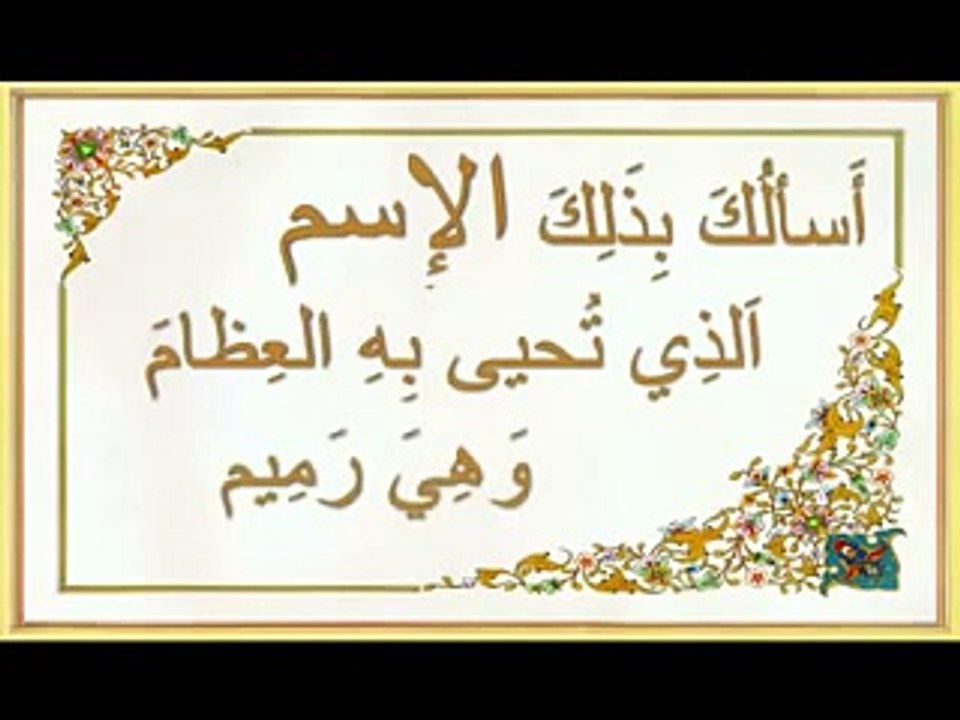 أَسألُكَ بِذَلِكَ الإِسم
اَلذِي تُحيى بِهِ العِظامَ
وَهِيَ رَمِيم